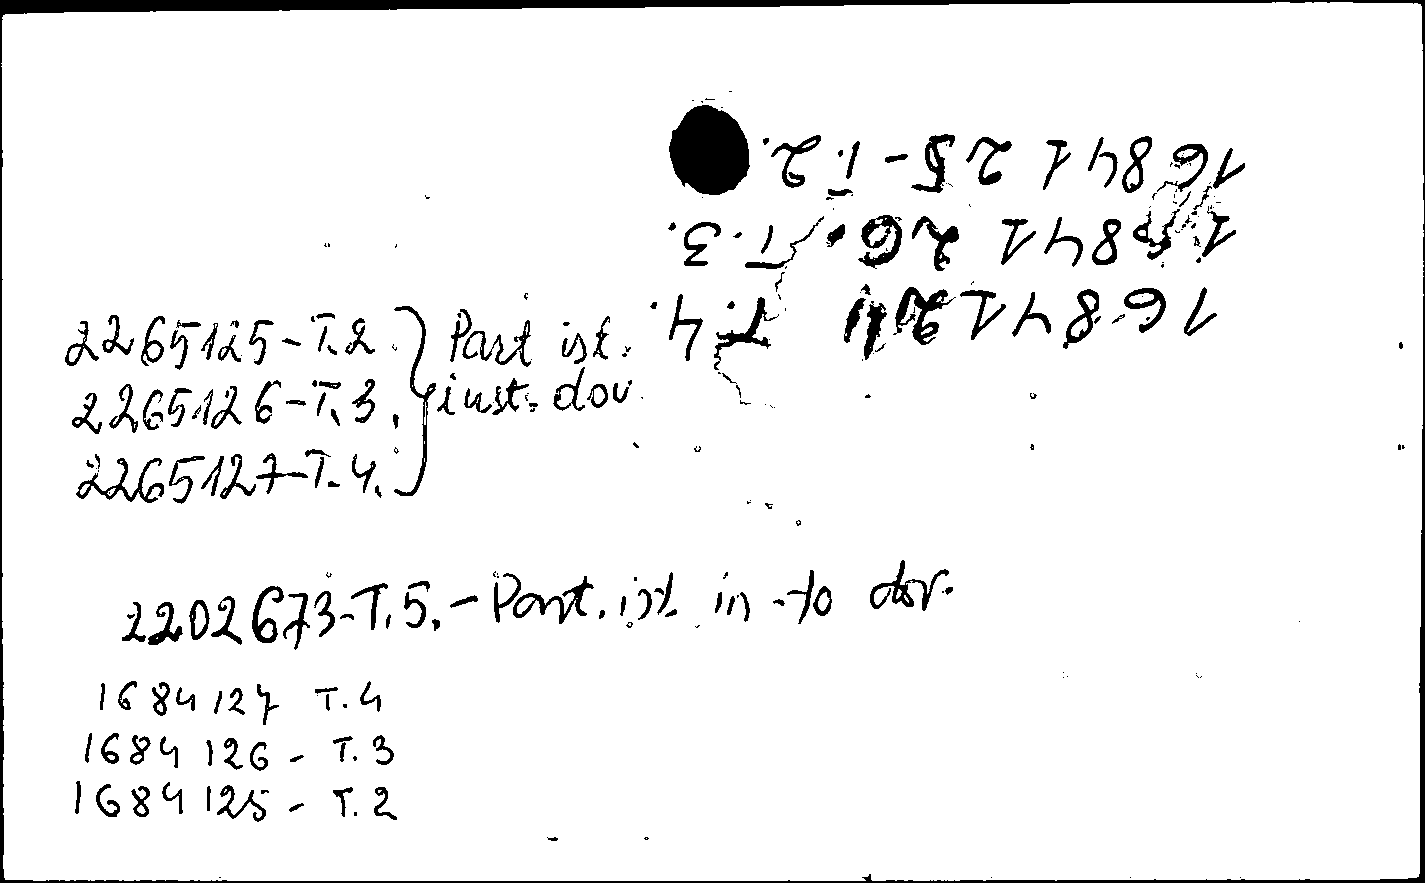 1684125-T.2.
1 841 26. T.3.
16841 T.4.
2265125-T.2.
2265126-T.3.
2265127-T.4.
Part ist.
inst. dov
2202673-T.5.-Part. ist. in-to dov.
1684127 T.4
1684126 - T.3
1684125 - T.2